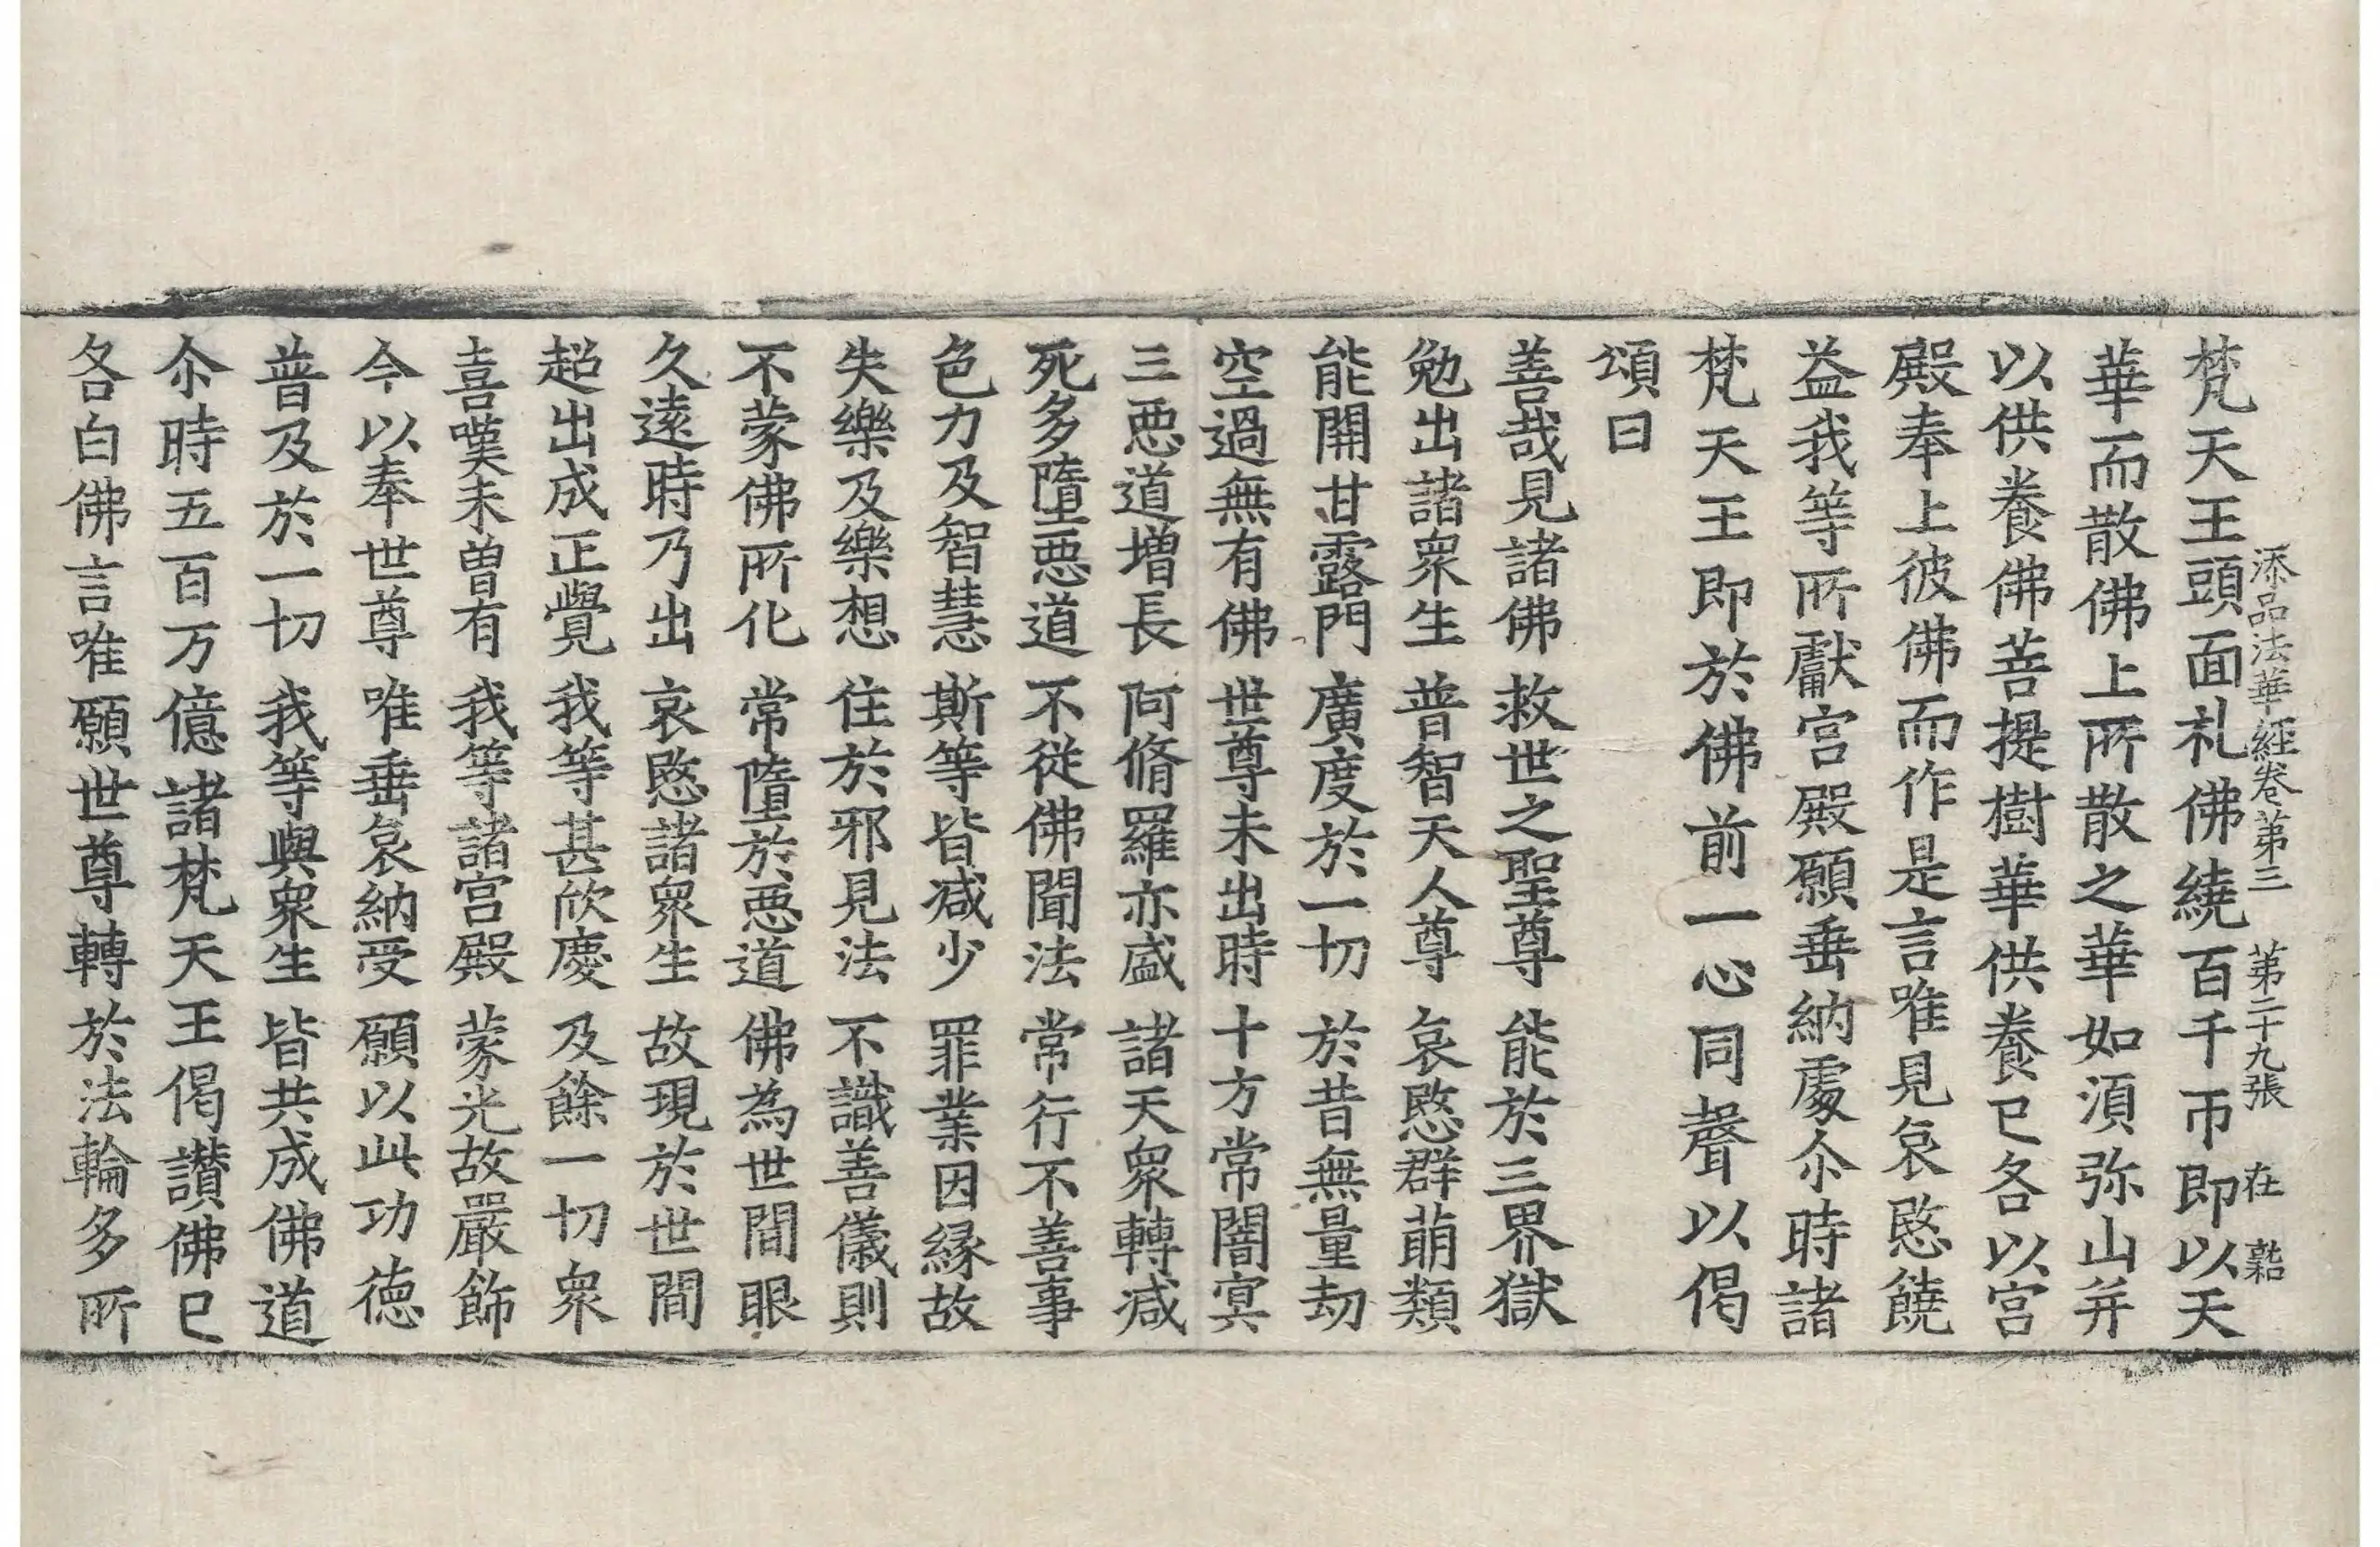 添品法華經卷第三 第二十九張 在 㘽
梵天王頭面礼佛繞百千帀即以天
華而散佛上所散之華如須弥山并
以供養佛菩提樹華供養已各以宫
殿奉上彼佛而作是言唯見哀愍饒
益我等所獻宫殿願垂納處尒時諸
梵天王即於佛前一心同聲以偈
頌曰
善哉見諸佛 救世之聖尊 能於三界獄
勉出諸衆生 普智天人尊 哀愍群萌類
能開甘露門 廣度於一切 於昔無量劫
空過無有佛 世尊未出時 十方常闇冥
三惡道增長 阿脩羅亦盛 諸天衆轉減
死多墮惡道 不從佛聞法 常行不善事
色力及智慧 斯等皆减少 罪業因緣故
失樂及樂想 住於邪見法 不識善儀則
不蒙佛所化 常墮於惡道 佛為世間眼
久遠時乃出 哀愍諸衆生 故現於世間
超出成正覺 我等甚欣慶 及餘一切衆
喜嘆未曽有 我等諸宫殿 蒙光故嚴飾
今以奉世尊 唯垂哀納受 願以此功德
普及於一切 我等與衆生 皆共成佛道
尒時五百万億諸梵天王偈讃佛已
各白佛言唯願世尊轉於法輪多所